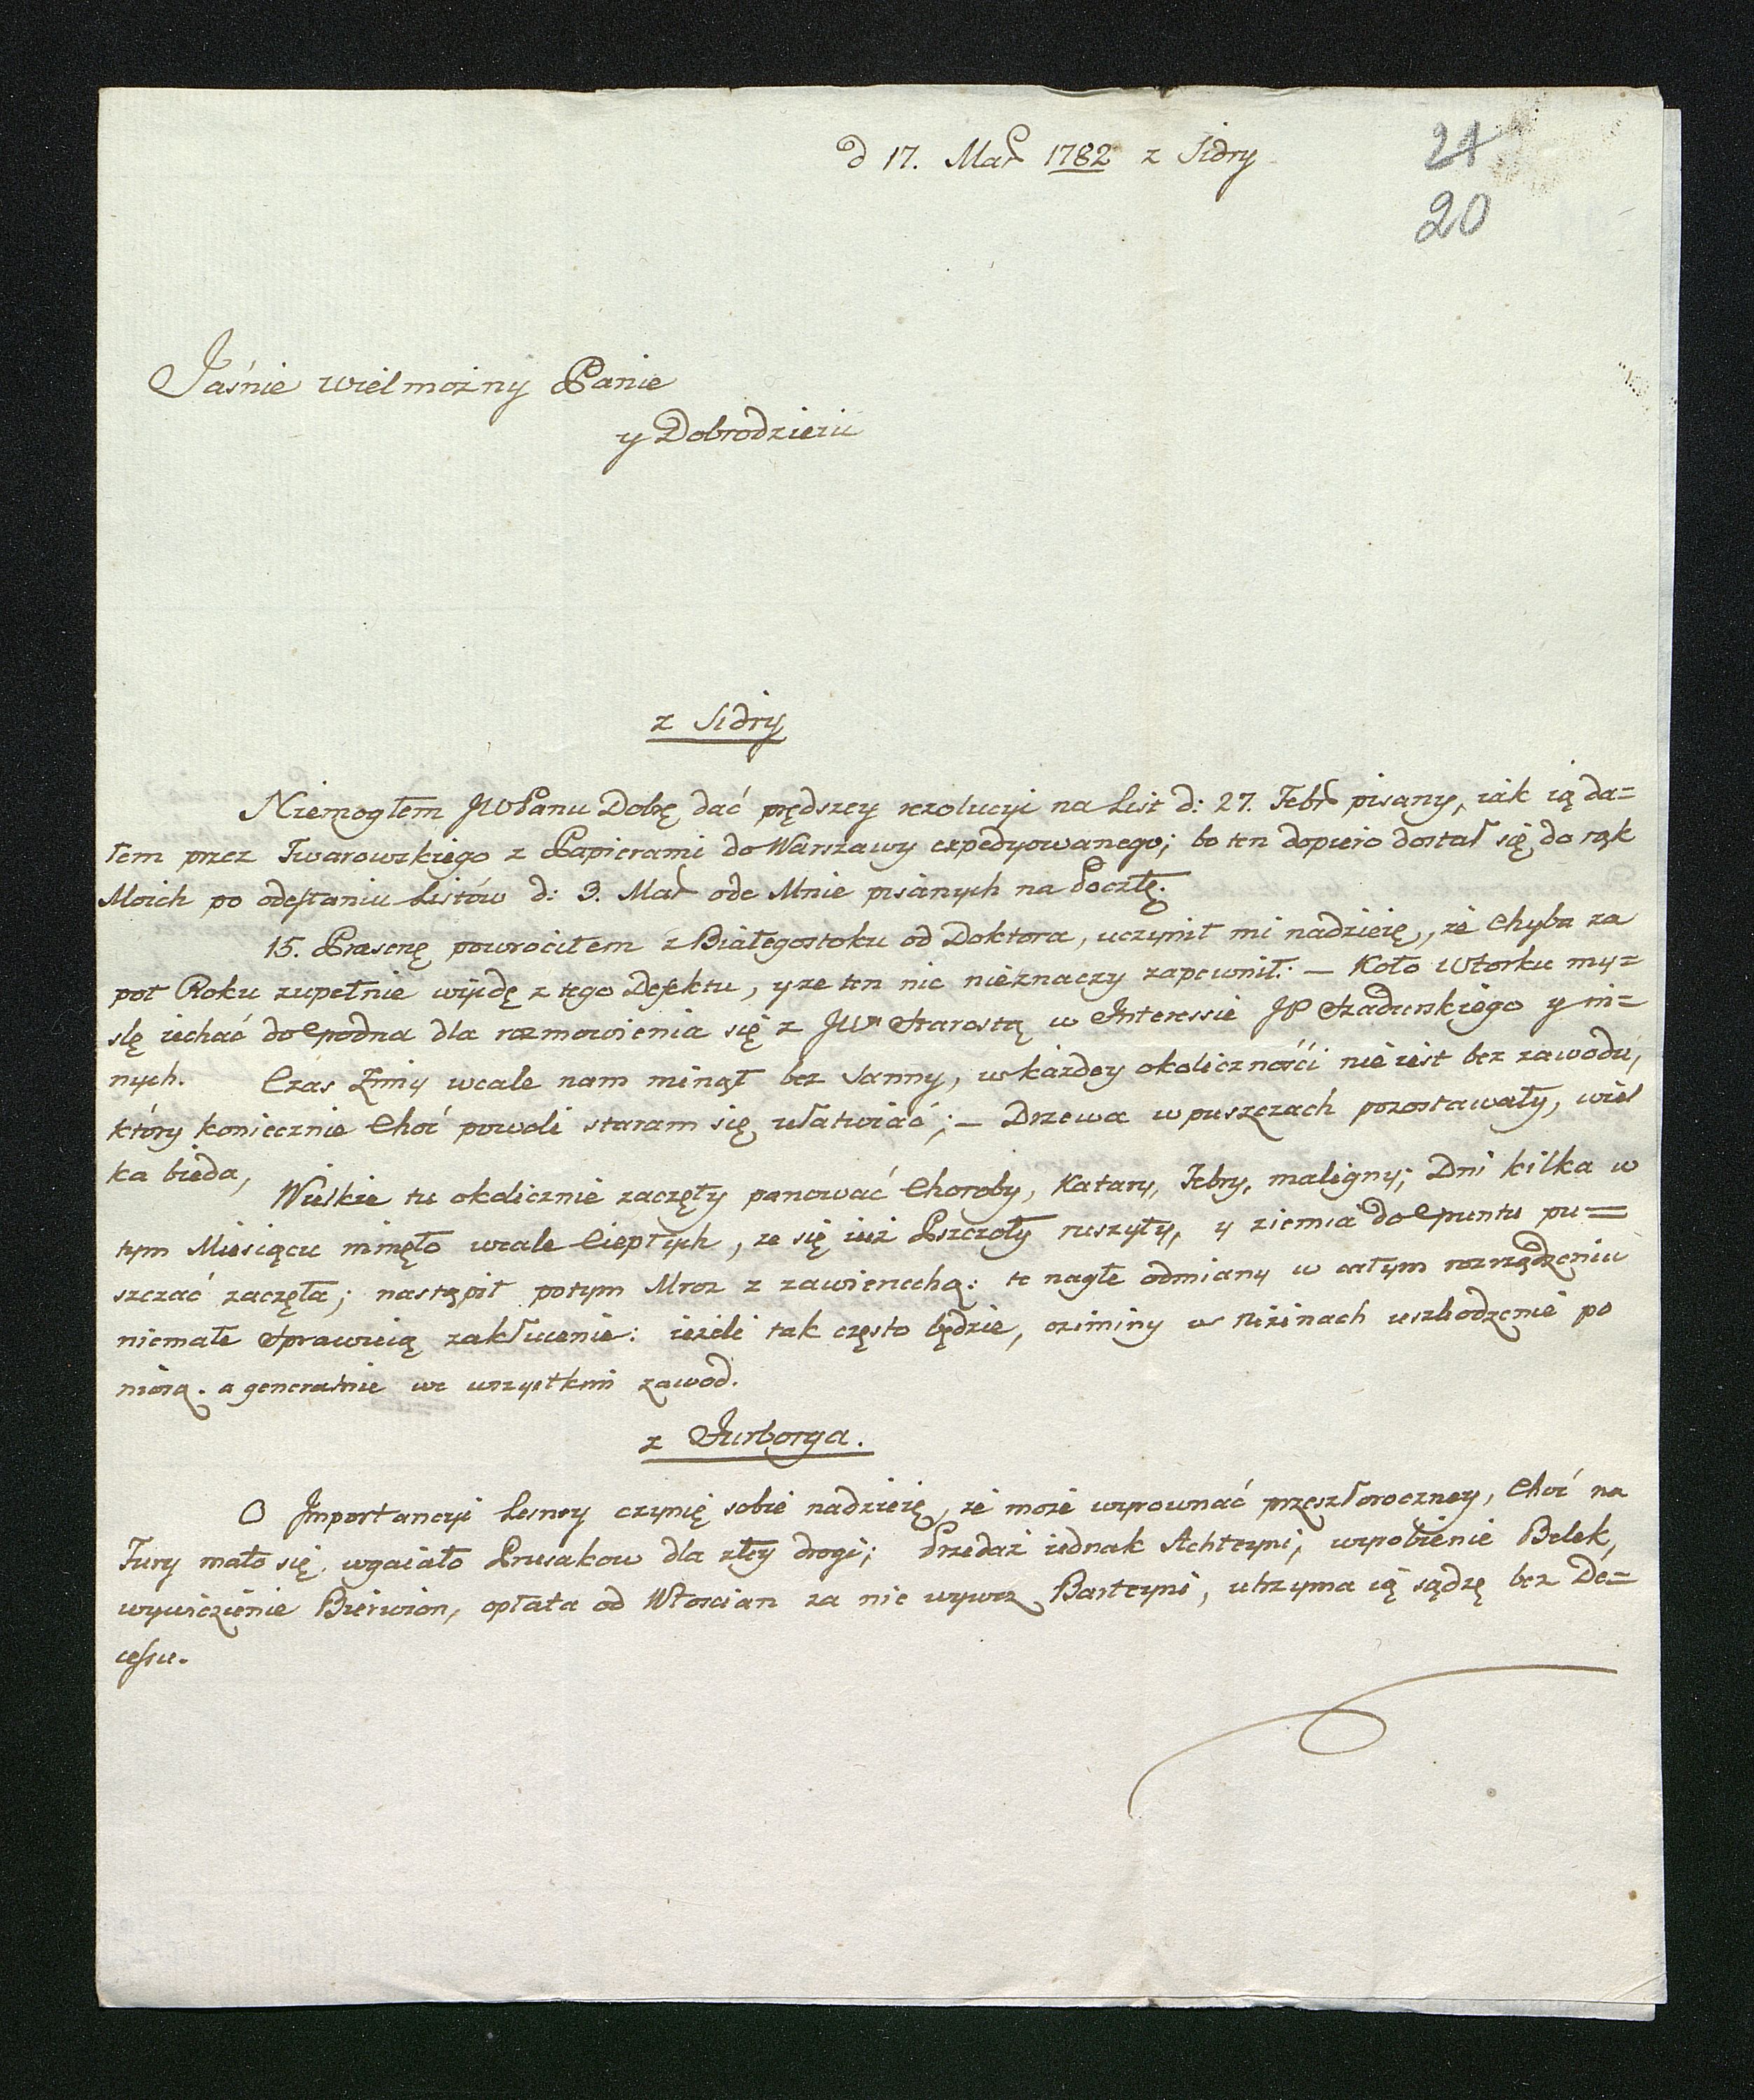 d 17. Mar 1782 z Sidry
24
20
Jaśnie wielmożny Panie
y Dobrodzieiu
z Sidry
Niemogłem JWPanu Dobę dać prędszey rezolucyi na List d: 27. Febr pisany, iak ią da=
łem przez Twarowskiego z Papierami do Warszawy expedyowanego; bo ten dopiero dostał się do rąk
Moich po odesłaniu Listów d: 3. Mar ode Mnie pisanych na Pocztę.
15. Præsenę powrociłem z Białegostoku od Doktora, uczynił mi nadzieię, że Chyba za
poł Roku zupełnie wyidę z tego Defektu, y ze ten nic nieznaczy zapewnił. — Koło Wtorku my=
slę iechać do Grodna dla rozmowienia się z JW Starostą w Interessie JP Szadurskiego y in=
nych. Czas Zimy wcale nam minął bez Sanny, w każdey okoliczności nie iest bez zawodu,
który koniecznie Choć powoli staram się ułatwiać; — Drzewa w puszczach pozostawały, wiel
ka bieda,
Wielkie tu okolicznie zaczęły panować Choroby, Katary, Febry, maligny; Dni kilka w
tym Miesiącu minęło wcale Ciepłych, ze się iuż Pszczoły ruszyły, y ziemia do Gruntu pu=
szczać zaczęła; nastąpił potym Mroz z zawieruchą: te nagłe odmiany w całym rozrządzeniu
niemałe Sprawuią zakłucenie: ieżeli tak często będzie, oziminy w Nizinach uszkodzenie po
niosą. a generalnie we wszystkim zawod.
z Jurborga.
O Importancyi Lesney czynię sobie nadzieię, że może wyrownać przeszłoroczney, Choć na
Fury mało się wgaiało Prusakow dla złey drogi; Przedaż iednak Achteyni, wyrobienie Belek,
wywiezienie Bierwion, opłata od Włoscian za nie wywoz Barteyni, utrzyma ią sądzę bez De=
cessu.